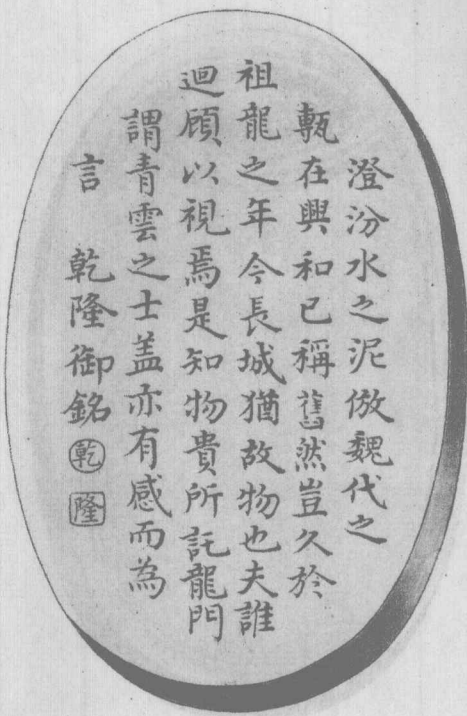 澄汾水之泥倣魏代之
甎在興和已稱舊然豈久於
祖龍之年今長城猶故物也夫誰
迴頋以視焉是知物貴所託龍門
謂青雲之士盖亦有感而為
言　乾隆御銘 乾 隆